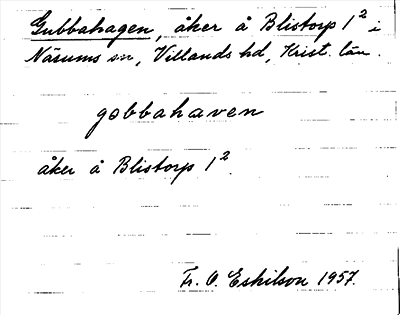 Gubbahagen, åker å Blistorp 1² i
Näsums sn, Villands hd, Krist. län.
gobbahaven
åker å Blistorp 1².
Fr. O. Eskilson 1957.